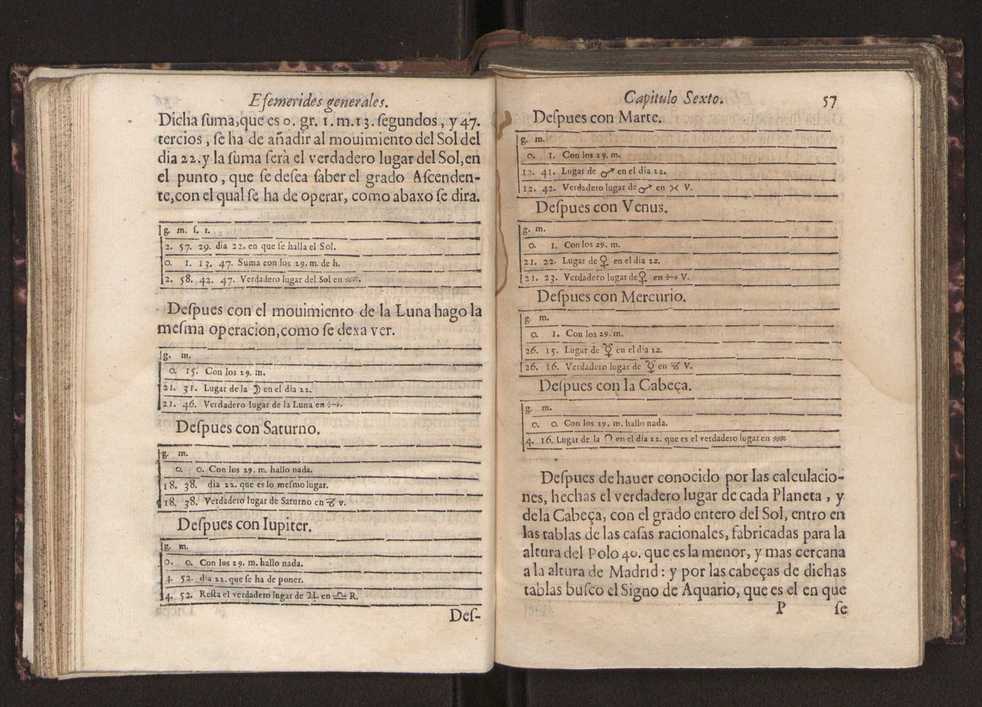 Efemerides generales.
Dicha ſuma,que es 0. gr. 1. m.13. ſegundos, y 47.
tercios, ſe ha de añadir al mouimiento del Sol del
dia 22.y la ſuma ſerà el verdadero lugar del Sol,en
el punto, que ſe deſea ſaber el grado Aſcenden-
te,con el qual ſe ha de operar, como abaxo ſe dira.
g. m. ſ. t.
2. 57. 29. dia 22. en que ſe halla el Sol.
0. 1. 13. 47. Suma con los 29. m. de h.
2. 58. 42. 47. Verdadero lugar del Sol en ♒.
Deſpues con el mouimiento de la Luna hago la
meſma operacion,como ſe dexa ver.
g. m.
0. 15. Con los 29. m.
21. 31. Lugar de la ☽ en el dia 22.
21. 46. Verdadero lugar de la Luna en ♐.
Deſpues con Saturno.
g. m.
0. 0. Con los 29. m. hallo nada.
18. 38. dia 22. que es lo meſmo lugar.
18. 38. Verdadero lugar de Saturno en ♉ v.
Deſpues con Iupiter.
g. m.
0. 0. Con los 29. m. hallo nada.
4. 52. dia 22. que ſe ha de poner.
4. 52. Reſta el verdadero lugar de ♃ en ♎ R.
Deſ-
Capitulo Sexto. 57
Deſpues con Marte.
g. m.
0. 1. Con los 29. m.
12. 41. Lugar de ♂ en el dia 22.
12. 42. Verdadero lugar de ♂ en ♓ V.
Deſpues con Venus.
g. m.
0. 1. Con los 29. m.
21. 22. Lugar de ♀ en el dia 22.
21. 23. Verdadero lugar de ♀ en ♐ V.
Deſpues con Mercurio.
g. m.
0. 1. Con los 29. m.
26. 15. Lugar de ☿ en el dia 22.
26. 16. Verdadero lugar de ☿ en ♑ V.
Deſpues con la Cabeça.
g. m.
0. 0. Con los 29. m. hallo nada.
4. 16. Lugar de la ☊ en el dia 22. que es el verdadero lugar en ♒
Deſpues de hauer conocido por las calculacio-
nes, hechas el verdadero lugar de cada Planeta, y
de la Cabeça, con el grado entero del Sol, entro en
las tablas de las caſas racionales, fabricadas para la
altura del Polo 40. que es la menor, y mas cercana
a la altura de Madrid: y por las cabeças de dichas
tablas buſco el Signo de Aquario, que es el en que
P ſe